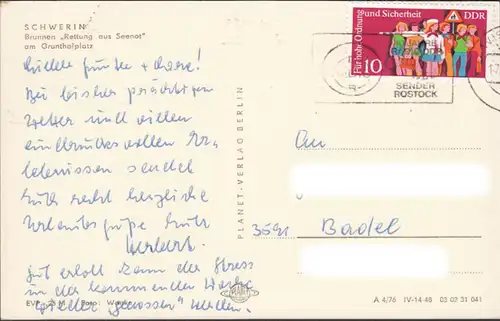 SCHWERIN
Brunnen „Rettung aus Seenot"
am Grunthalplatz
Bei bisher prächtigem
Wetter und vielen
eindrucksvollen Er-
lebnissen sendet
Euch recht herzliche
Urlaubsgrüße Euer
Gut erholt kann der Stress
in der kommenden Woche
wieder „genossen" werden.
EVP
Foto:
PLANET-VERLAG BERLIN
Für hohe Ordnung und Sicherheit
DDR
10
SENDER
ROSTOCK
An
3591 Badel
A 4/76 IV-14-48 03 02 31 041